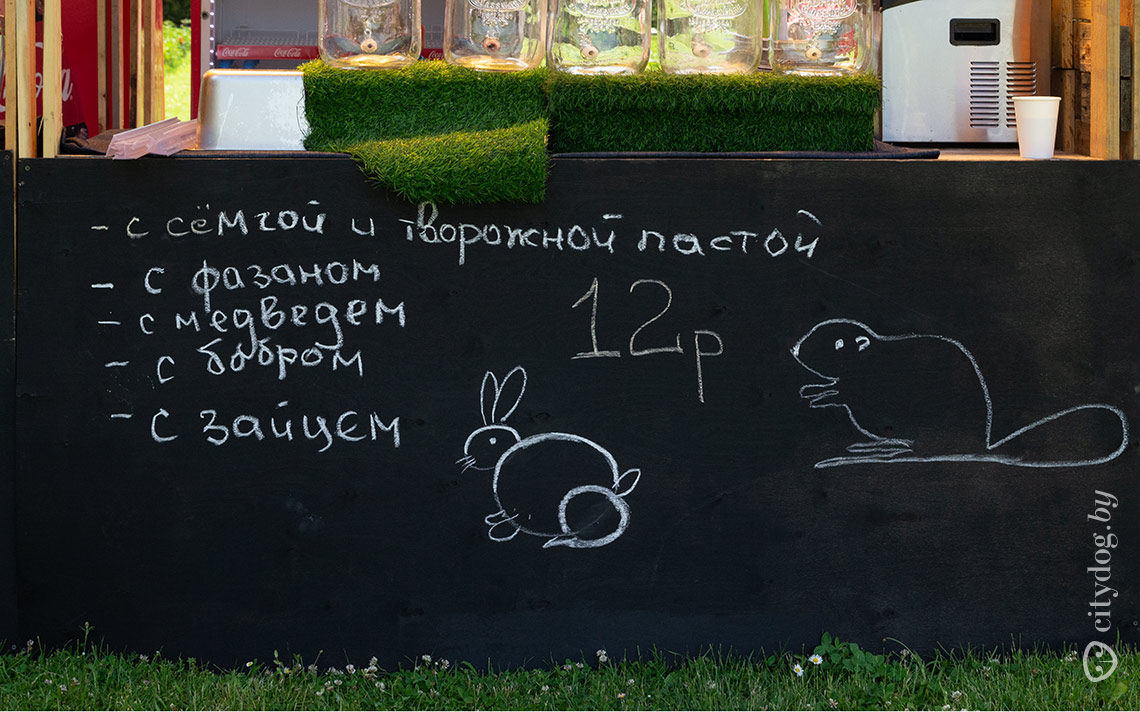 Coca-Cola Coca-Cola
- с сёмгой и творожной пастой
- с фазаном
- с медведем
- с бобром
- с зайцем
12р
citydog.by